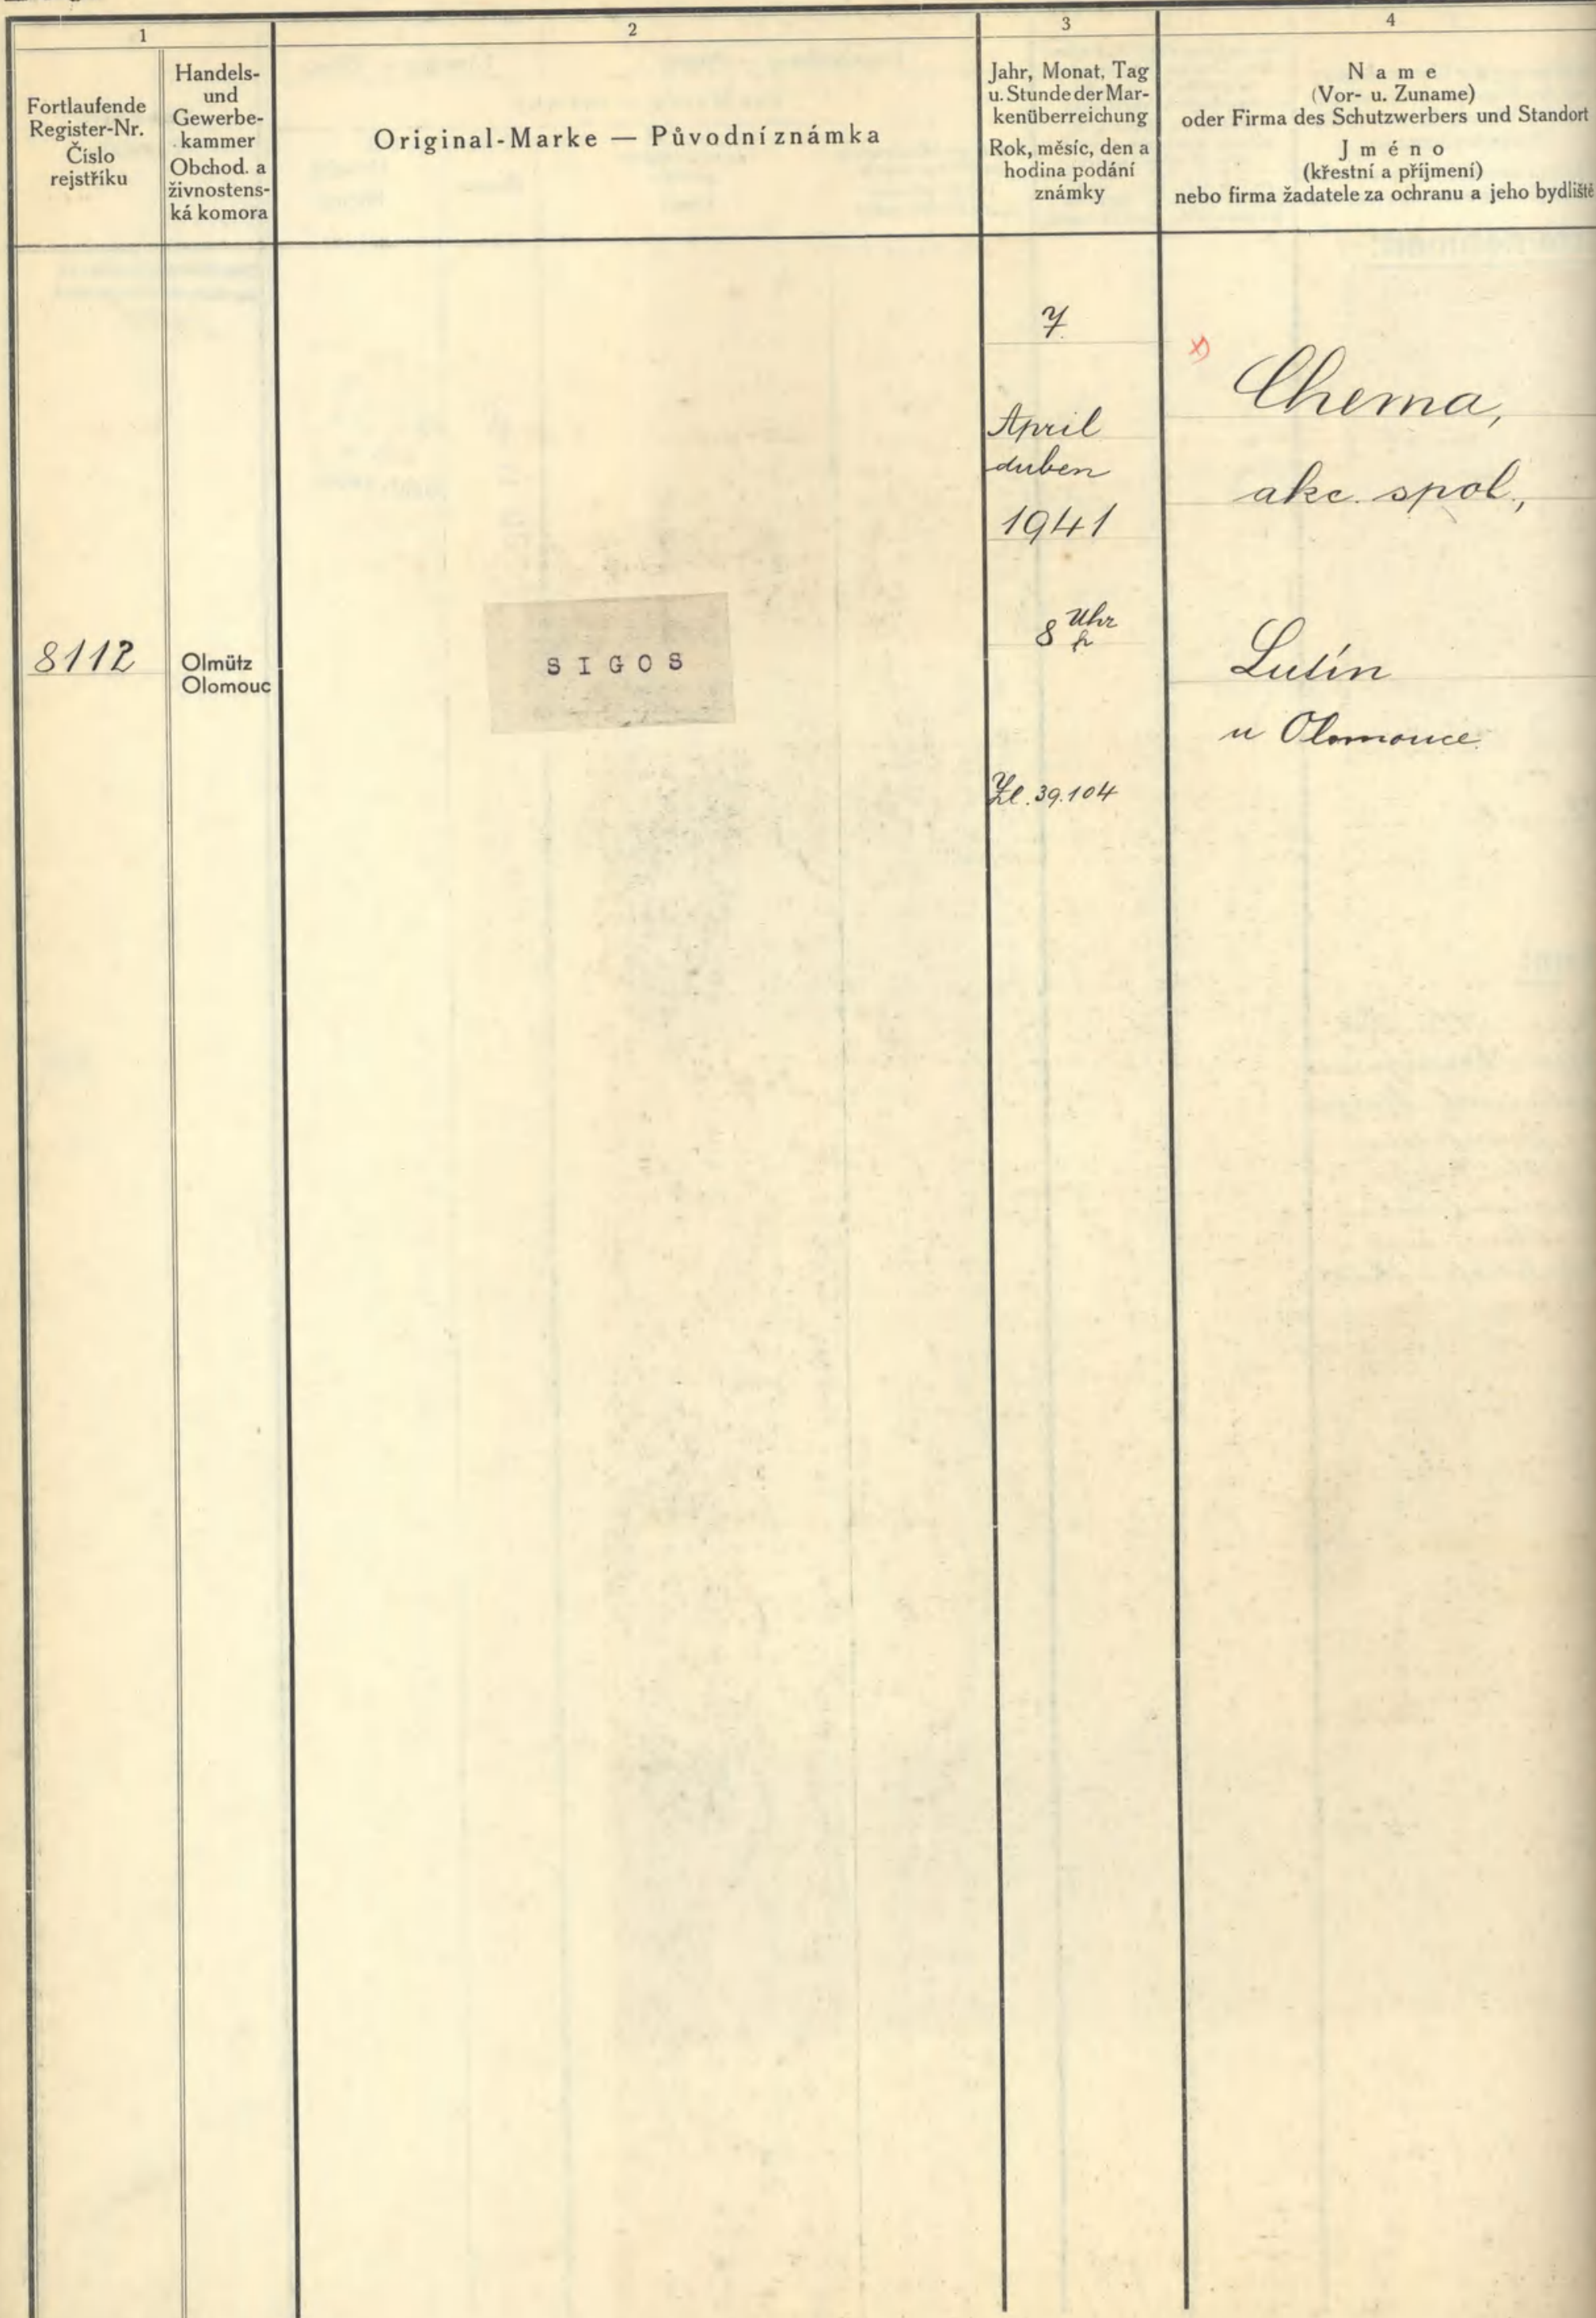 1
Fortlaufende
Register-Nr.
Číslo
rejstříku
Handels-
und
Gewerbe-
kammer
Obchod. a
živnostens-
ká komora
2
Original-Marke — Původní známka
3
Jahr, Monat, Tag
u. Stunde der Mar-
kenüberreichung
Rok, měsíc, den a
hodina podání
známky
4
Name
(Vor- u. Zuname)
oder Firma des Schutzwerbers und Standort
Jméno
(křestní a příjmení)
nebo firma žadatele za ochranu a jeho bydliště
8112
Olmütz
Olomouc
SIGOS
7.
April
duben
1941
8 Uhr
h
Zl. 39.104
x)
Chema,
akc. spol.,
Lutín
u Olomouce.